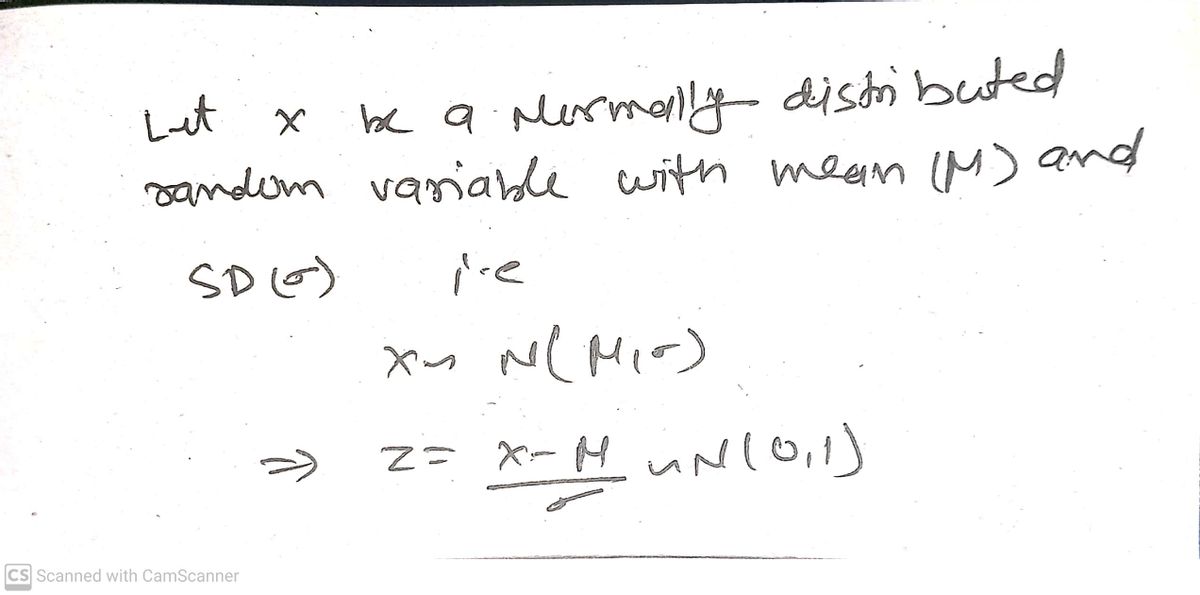 Let x be a Normally distributed
random variable with mean (μ) and
SD (σ) i.e
X ~ N(μ, σ)
⇒ Z = X - μ / σ ~ N(0,1)
CS Scanned with CamScanner